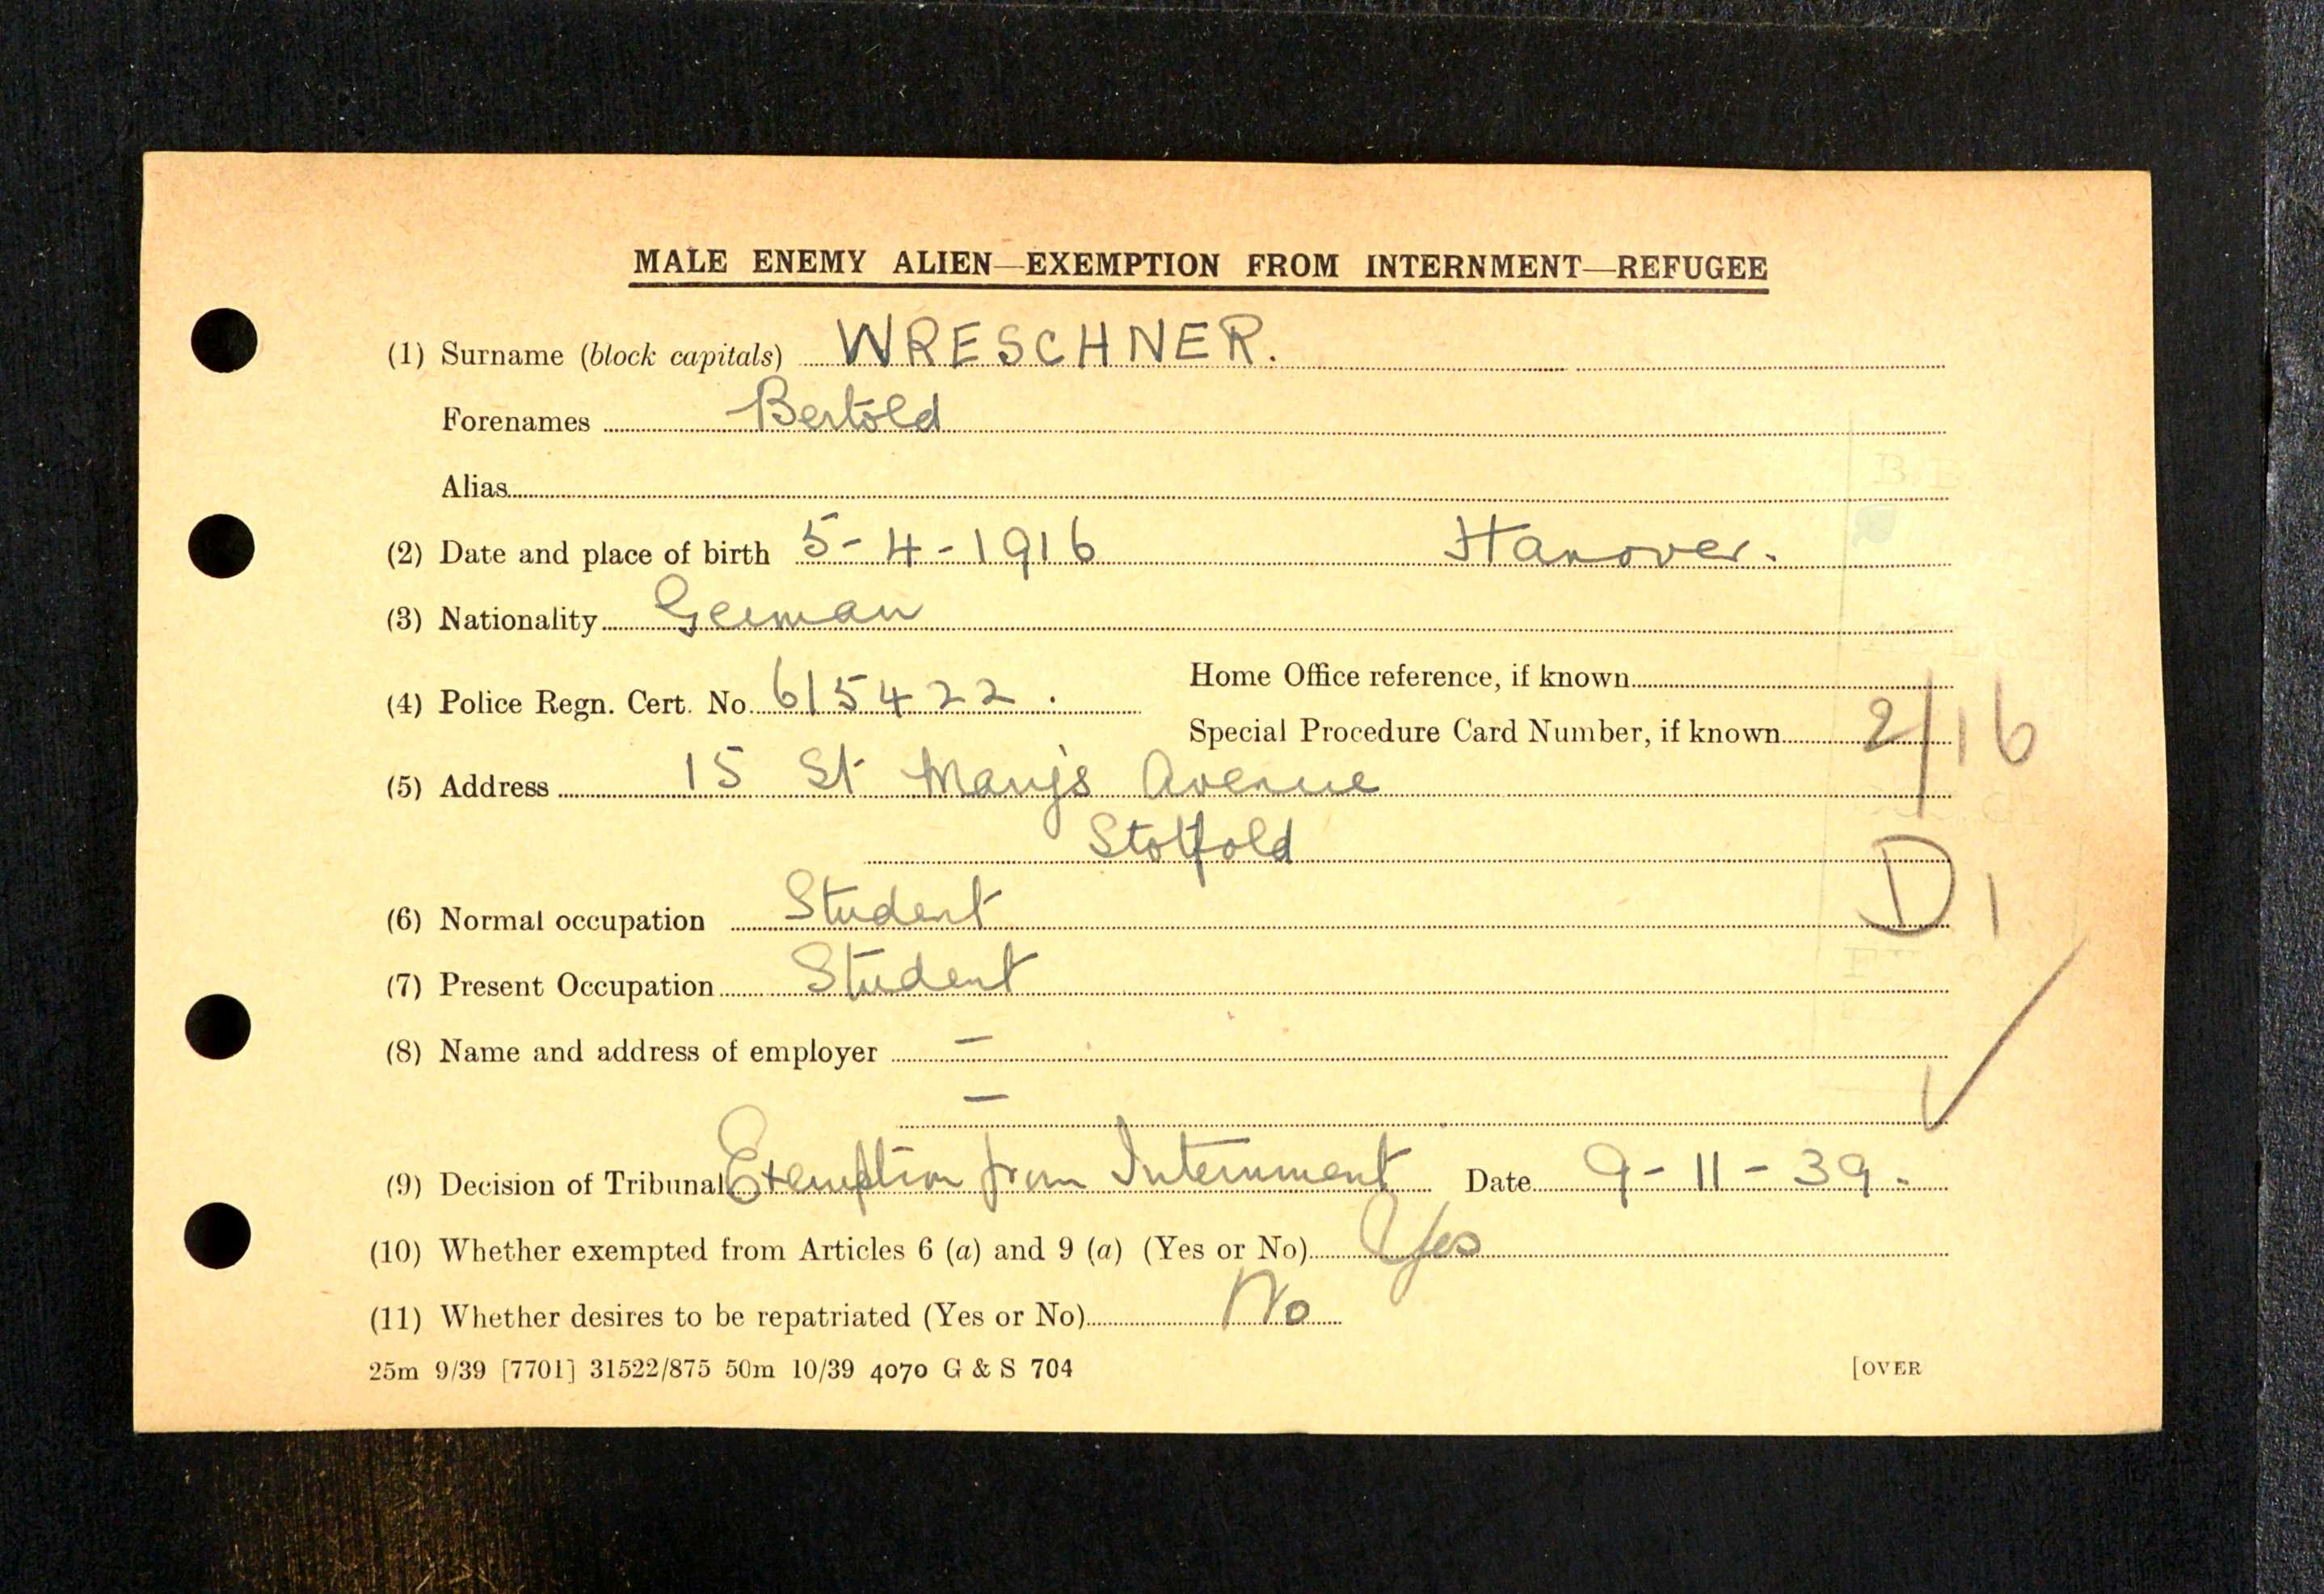 MALE ENEMY ALIEN—EXEMPTION FROM INTERNMENT—REFUGEE
(1) Surname (block capitals) WRESCHNER.
Forenames Bertold
Alias
(2) Date and place of birth 5-4-1916 Hanover.
(3) Nationality German
(4) Police Regn. Cert. No. 615422.
Home Office reference, if known
Special Procedure Card Number, if known 2/16
(5) Address 15 St Mary's Avenue
Stotfold
D1
(6) Normal occupation Student
(7) Present Occupation Student
(8) Name and address of employer –
–
(9) Decision of Tribunal Exemption from Internment Date 9-11-39.
(10) Whether exempted from Articles 6 (a) and 9 (a) (Yes or No) Yes
(11) Whether desires to be repatriated (Yes or No) No
25m 9/39 [7701] 31522/875 50m 10/39 4070 G & S 704
[OVER